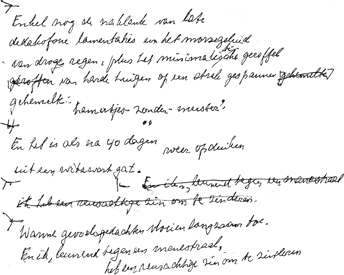 Enkel nog de naklank van late
dodekafone lamentaties en het morsegeluid
van droge regen, plus het minimalistische geroffel
geroffen van harde twijgen op een strak gespannen gehemelte
gehemelte:
hamertjes-zonder-meester".
En het is als na 40 dagen
weer opduiken
uit een witzwart gat.
En ik, leunend tegen een manestraal
ik heb een reusachtige zin om te zinderen.
Warme gevoelsgedachten vloeien langzaam toe.
En ik, leunend tegen een manestraal,
heb een reusachtige zin om te zinderen